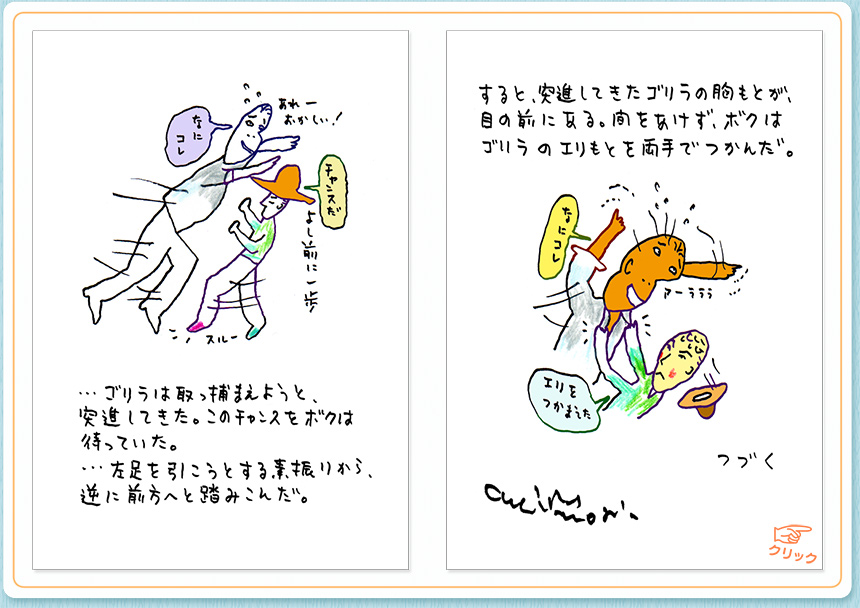 あれー
おかしい!
なに
コレ
チャンスだ
よし前に一歩
スルー
…ゴリラは取っ捕まえようと、
突進してきた。このチャンスをボクは
待っていた。
…左足を引こうとする素振りから、
逆に前方へと踏みこんだ。
すると、突進してきたゴリラの胸もとが、
目の前にある。間をあけず、ボクは
ゴリラのエリもとを両手でつかんだ。
なにコレ
アーララララ
エリを
つかまえた
つづく
クリック